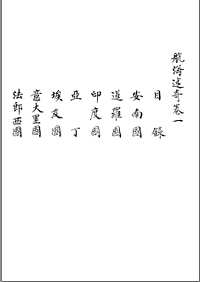 航海述奇卷一
目錄
安南國
暹羅國
印度國
亞丁
埃及國
意大里國
法郎西國